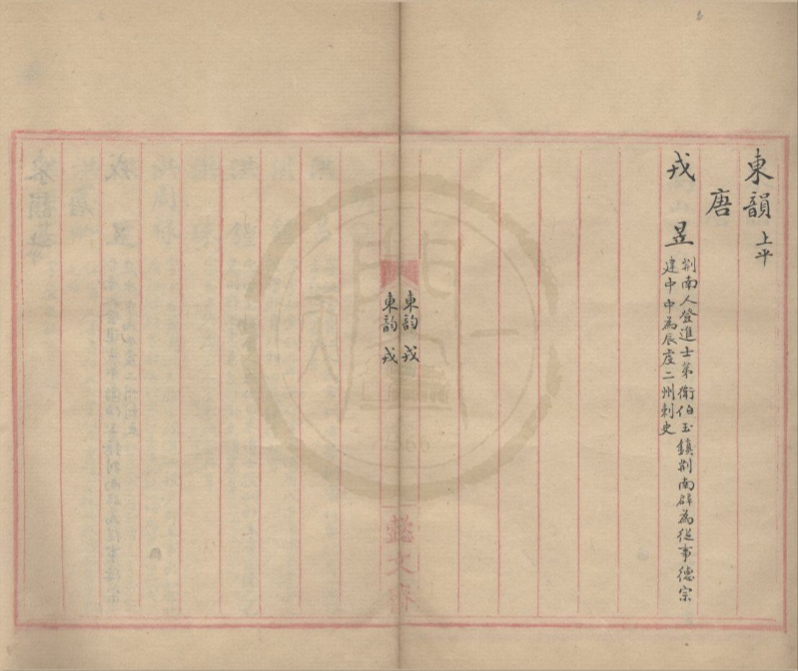 東韻上平
唐
戎昱
荆南人登進士第衛伯玉鎮荆南辟為從事德宗
建中中為辰虔二州刺史
東韵 戎
東韵 戎